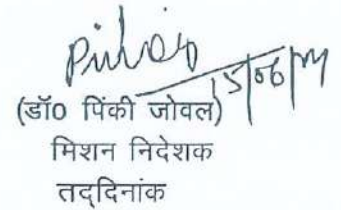 15/06/24
(डॉ0 पिंकी जोवल)
मिशन निदेशक
तद्दिनांक